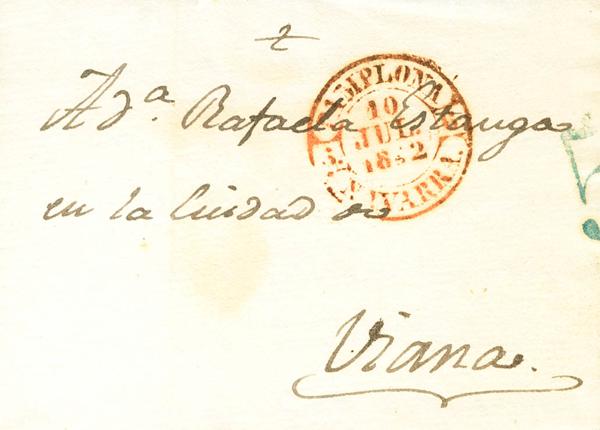 A d.ª Rafaela Estanga
en la Ciudad de
Viana.
PAMPLONA
10
JUL
1842
NAVARRA.